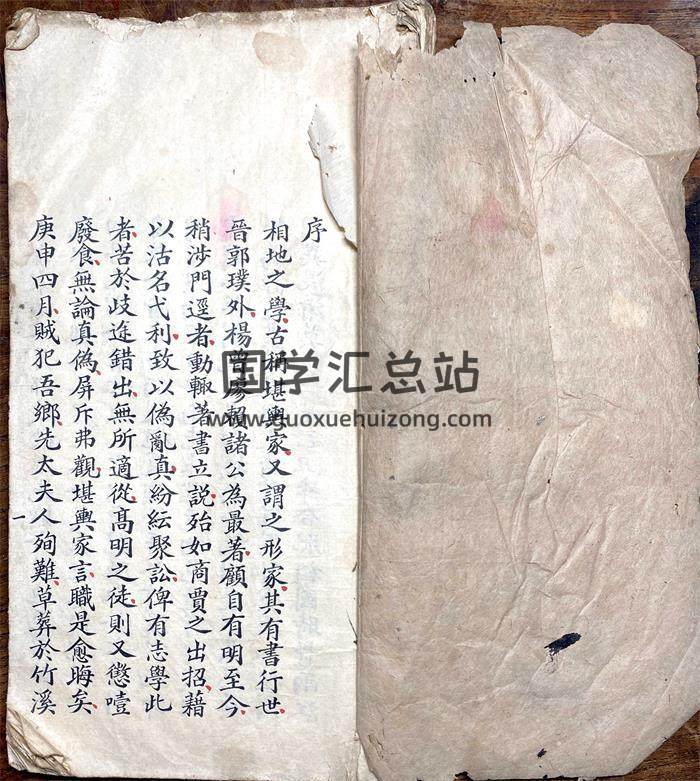 序
相地之學古稱堪輿家又謂之形家其有書行世
晉郭璞外楊曾廖賴諸公為最著顧自有明至今
稍涉門逕者動輒著書立説殆如商賈之出招藉
以沽名弋利致以偽亂真紛紜聚訟俾有志學此
者苦於歧途錯出無所適從髙明之徒則又懲噎
廢食無論真偽屏斥弗觀堪輿家言職是愈晦矣
庚申四月賊犯吾鄉先太夫人殉難草葬於竹溪
一
国学汇总站
www.guoxuehuizong.com